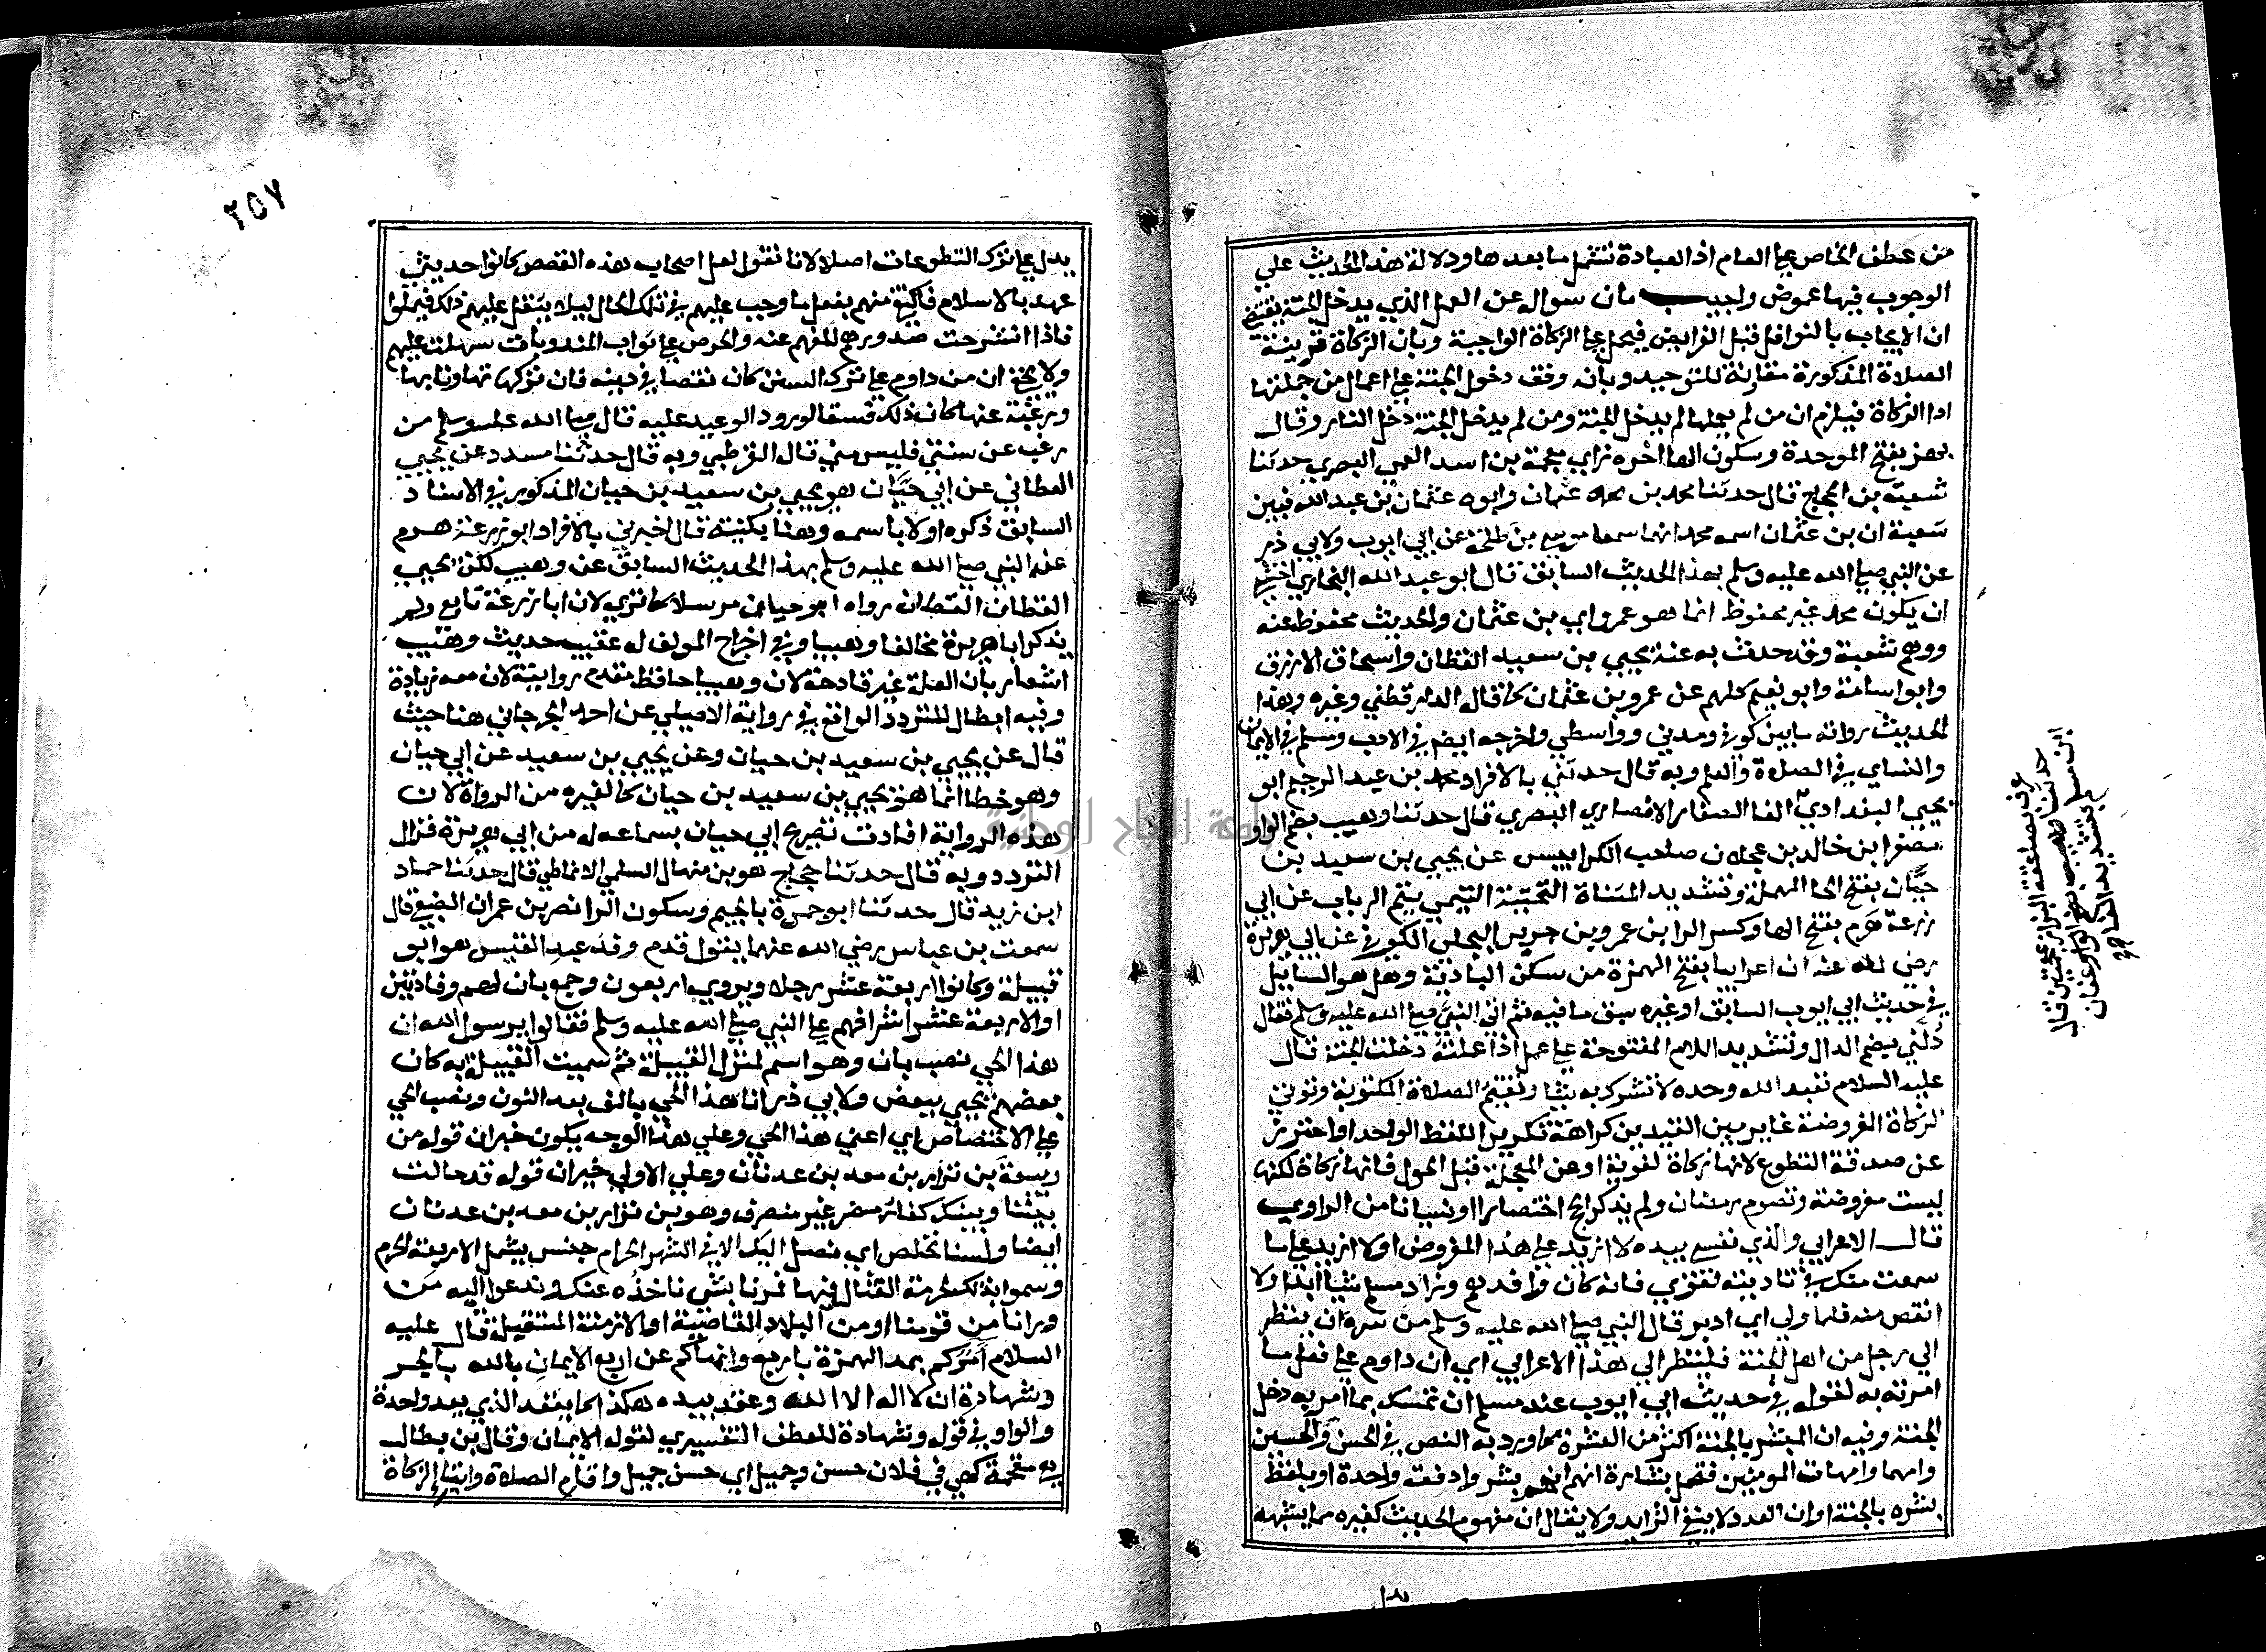 من عطف الخاص على العام اذ العبادة تشمل ما بعدها ودلالة هذا الحديث على
الوجوب فيها غموض واجيب بان سوال عن العمل الذي يدخل الجنة يقتضي
ان الايجاب بالنوافل قبل الفرايض فيحمل على الزكاة الواجبة وبان الزكاة قرينة
الصلاة المذكورة مقارنة للتوحيد وبانه وقف دخول الجنة على اعمال من جملتها
ادا الزكاة فيلزم ان من لم يعملها لم يدخل الجنة ومن لم يدخل الجنة دخل النار وقال
بهز بفتح الموحدة وسكون الها اخره زاي معجمة بن اسد العمي البصري حدثنا
شعبة بن الحجاج قال حدثنا محمد بن عثمان وابوه عثمان بن عبد الله فبين
شعبة ان بن عثمان اسمه محمد انهما سمعا موسى بن طلحة عن ابي ايوب ولابي ذر
عن النبي صلى الله عليه وسلم بهذا الحديث السابق قال ابو عبد الله البخاري اخشى
ان يكون محمد غير محفوظ انما هو عمرو اي بن عثمان والحديث محفوظ عنه
ووهم شعبة وقد حدث به عنه يحيى بن سعيد القطان واسحاق الازرق
وابو اسامة وابو نعيم كلهم عن عمرو بن عثمان كما قال الدارقطني وغيره وهذا
الحديث رواته ما بين كوفي ومدني وواسطي واخرجه ايضا في الادب ومسلم في الايمان
والنساي في الصلاة والعلم وبه قال حدثني بالافراد محمد بن عبد الرحيم ابو
يحيى البغدادي الصفار الانصاري البصري قال حدثنا وهيب بضم الواو
مصغرا بن خالد بن عجلان صاحب الكرابيس عن يحيى بن سعيد بن
حيان بفتح الحا المهملة وتشديد المثناة التحتية التيمي بتيم الرباب عن ابي
زرعة هرم بفتح الها وكسر الرا بن عمرو بن جرير البجلي الكوفي عن ابي هريرة
رضي الله عنه ان اعرابيا بفتح الهمزة من سكن البادية وهل هو السايل
في حديث ابي ايوب السابق او غيره سبق ما فيه ثم اتى النبي صلى الله عليه وسلم فقال
دلني بضم الدال وتشديد اللام المفتوحة على عمل اذا عملته دخلت الجنة قال
عليه السلام تعبد الله وحده لا تشرك به شيا وتقيم الصلاة المكتوبة وتوتي
الزكاة المفروضة غاير بين القيدين كراهة تكرير اللفظ الواحد او احترز
عن صدقة التطوع لانها زكاة لغوية او عن المعجلة قبل الحول فانها زكاة لكنها
ليست مفروضة وتصوم رمضان ولم يذكر الحج اختصارا او نسيانا من الراوي
قال الاعرابي والذي نفسي بيده لا ازيد على هذا المفروض او لا ازيد على ما
سمعت منك في تاديته لقومي فانه كان وافدهم وزاد مسلم شيا ابدا ولا
انقص منه فلما ولى اي ادبر قال النبي صلى الله عليه وسلم من سره ان ينظر
الى رجل من اهل الجنة فلينظر الى هذا الاعرابي اي ان داوم على فعل ما
امرته به لقوله في حديث ابي ايوب عند مسلم ان تمسك بما امر به دخل
الجنة وفيه ان المبشر بالجنة اكثر من العشرة كما ورد به النص في الحسن والحسين
وامهما وامهات المومنين فتحمل بشارة العشرة انهم بشروا دفعة واحدة او بلفظ
بشره بالجنة او ان العدد لا ينفي الزايد ولا يقال ان مفهوم الحديث كغيره مما يشبهه
عرف بصاعقة البزاز بمعجمتين قال
حدثنا
ابن مسلم بتشديد الفا
٢٥٧
يدل على ترك التطوعات اصلا لانا نقول لعل اصحاب هذه القصص كانوا حديثي
عهد بالاسلام فاكتفى منهم بفعل ما وجب عليهم في تلك الحال ليلا يثقل عليهم ذلك فيملوا
فاذا انشرحت صدورهم للفهم عنه والحرص على ثواب المندوبات سهلت عليهم
ولا يخفى ان من داوم على ترك السنن كان نقصا في دينه فان تركها تهاونا بها
ورغبة عنها كان ذلك فسقا لورود الوعيد عليه قال صلى الله عليه وسلم من
رغب عن سنتي فليس مني قاله القرطبي وبه قال حدثنا مسدد عن يحيى
القطان عن ابي حيان هو يحيى بن سعيد بن حيان المذكور في الاسناد
السابق ذكره اولا باسمه وهنا بكنيته قال اخبرني بالافراد ابو زرعة هرم
عن النبي صلى الله عليه وسلم بهذا الحديث السابق عن وهيب لكن يحيى
القطان رواه ابو حيان مرسلا كما ترى لان ابا زرعة تابعي ولم
يذكر ابا هريرة مخالفا وهيبا وفي اخراج المولف له عقيب حديث وهيب
اشعار بان العلة غير قادحة لان وهيبا حافظ مقدم روايته لان معه زيادة
وفيه ابطال للتردد الواقع في رواية الاصيلي عن احمد الجرجاني هنا حيث
قال عن يحيى بن سعيد بن حيان وعن يحيى بن سعيد عن ابي حيان
وهو خطا انما هو يحيى بن سعيد بن حيان كما لغيره من الرواة لان
هذه الرواية افادت تصريح ابي حيان بسماعه له من ابي هريرة فزال
التردد وبه قال حدثنا حجاج هو بن منهال السلمي الانماطي قال حدثنا حماد
ابن زيد قال حدثنا ابو جمرة بالجيم وسكون الرا نصر بن عمران الضبعي قال
سمعت بن عباس رضي الله عنهما يقول قدم وفد عبد القيس هو ابو
قبيلة وكانوا اربعة عشر رجلا ويروى اربعون وجمع بان لهم وفادتين
او الاربعة عشر اشرافهم على النبي صلى الله عليه وسلم فقالوا يا رسول الله ان
هذا الحي نصب بان وهو اسم لمنزل القبيلة ثم سميت القبيلة به كان
بعضهم يحيى ببعض ولابي ذر انا هذا الحي بالف بعد النون ونصب الحي
على الاختصاص اي اعني هذا الحي وعلى هذا الوجه يكون خبر ان قوله من
ربيعة بن نزار بن معد بن عدنان وعلى الاولى خبر ان قوله قد حالت
بيننا وبينك كفار مضر غير منصرف وهو بن نزار بن معد بن عدنان
ايضا ولسنا نخلص اي نصل اليك الا في الشهر الحرام جنس يشمل الاربعة الحرم
وسموا بذلك لحرمة القتال فيها فمرنا بشي ناخذه عنك وندعوا اليه من
ورانا من قومنا او من البلاد القاصية او الازمنة المستقبلة قال عليه
السلام آمركم بمد الهمزة باربع وانهاكم عن اربع الايمان بالله بالجر
وشهادة ان لا اله الا الله وعقد بيده هكذا كما يعقد الذي يعد واحدة
والواو في قوله وشهادة للعطف التفسيري لقوله الايمان وقال بن بطال
هي مقحمة كهي في فلان حسن وجميل اي حسن جميل واقام الصلاة وايتا الزكاة